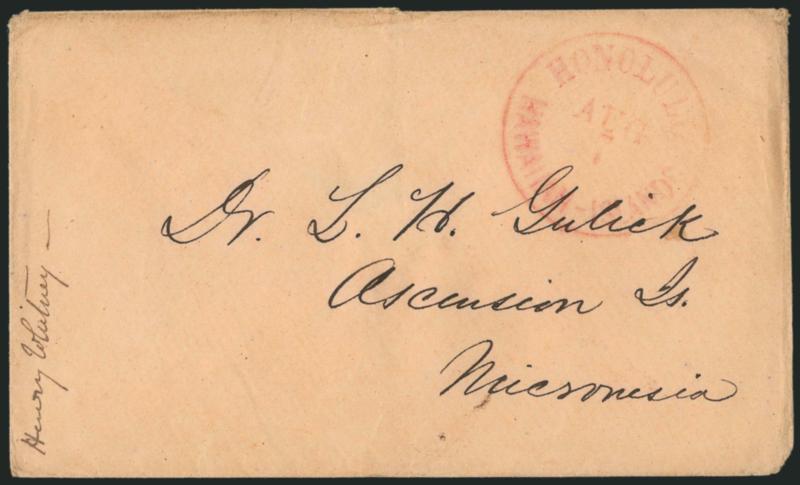 HONOLULU
AUG
5
HAWAIIAN-ISLANDS
Dr. L. H. Gulick
Ascension Is.
Micronesia
Henry Whitney —